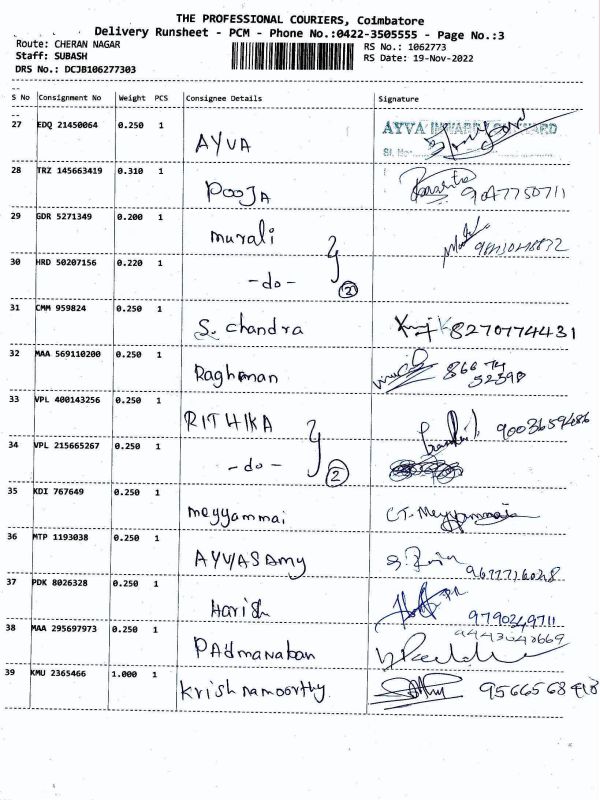 THE PROFESSIONAL COURIERS, Coimbatore
Delivery Runsheet - PCM - Phone No.:0422-3505555 - Page No.:3
Route: CHERAN NAGAR RS No.: 1062773
Staff: SUBASH RS Date: 19-Nov-2022
DRS No.: DCJB106277303
S No Consignment No Weight PCS Consignee Details Signature
27 EDQ 21450064 0.250 1 AYVA AYVA INWARD
Sl. No.
28 TRZ 145663419 0.310 1 POOJA 9047750711
29 GDR 5271349 0.200 1 murali
30 HRD 50207156 0.220 1 -do- 2
31 CMM 959824 0.250 1 S. chandra 8270774431
32 MAA 569110200 0.250 1 Raghman 866 74
52598
33 VPL 400143256 0.250 1 RITHIKA
34 VPL 215665267 0.250 1 -do- 2
35 KDI 767649 0.250 1 meyyammai CT. Meyyammai
36 MTP 1193038 0.250 1 AYVASAmy
37 PDK 8026328 0.250 1 Harish 9790249711
38 MAA 295697973 0.250 1 PAdmanaban
39 KMU 2365466 1.000 1 Krishnamoorthy